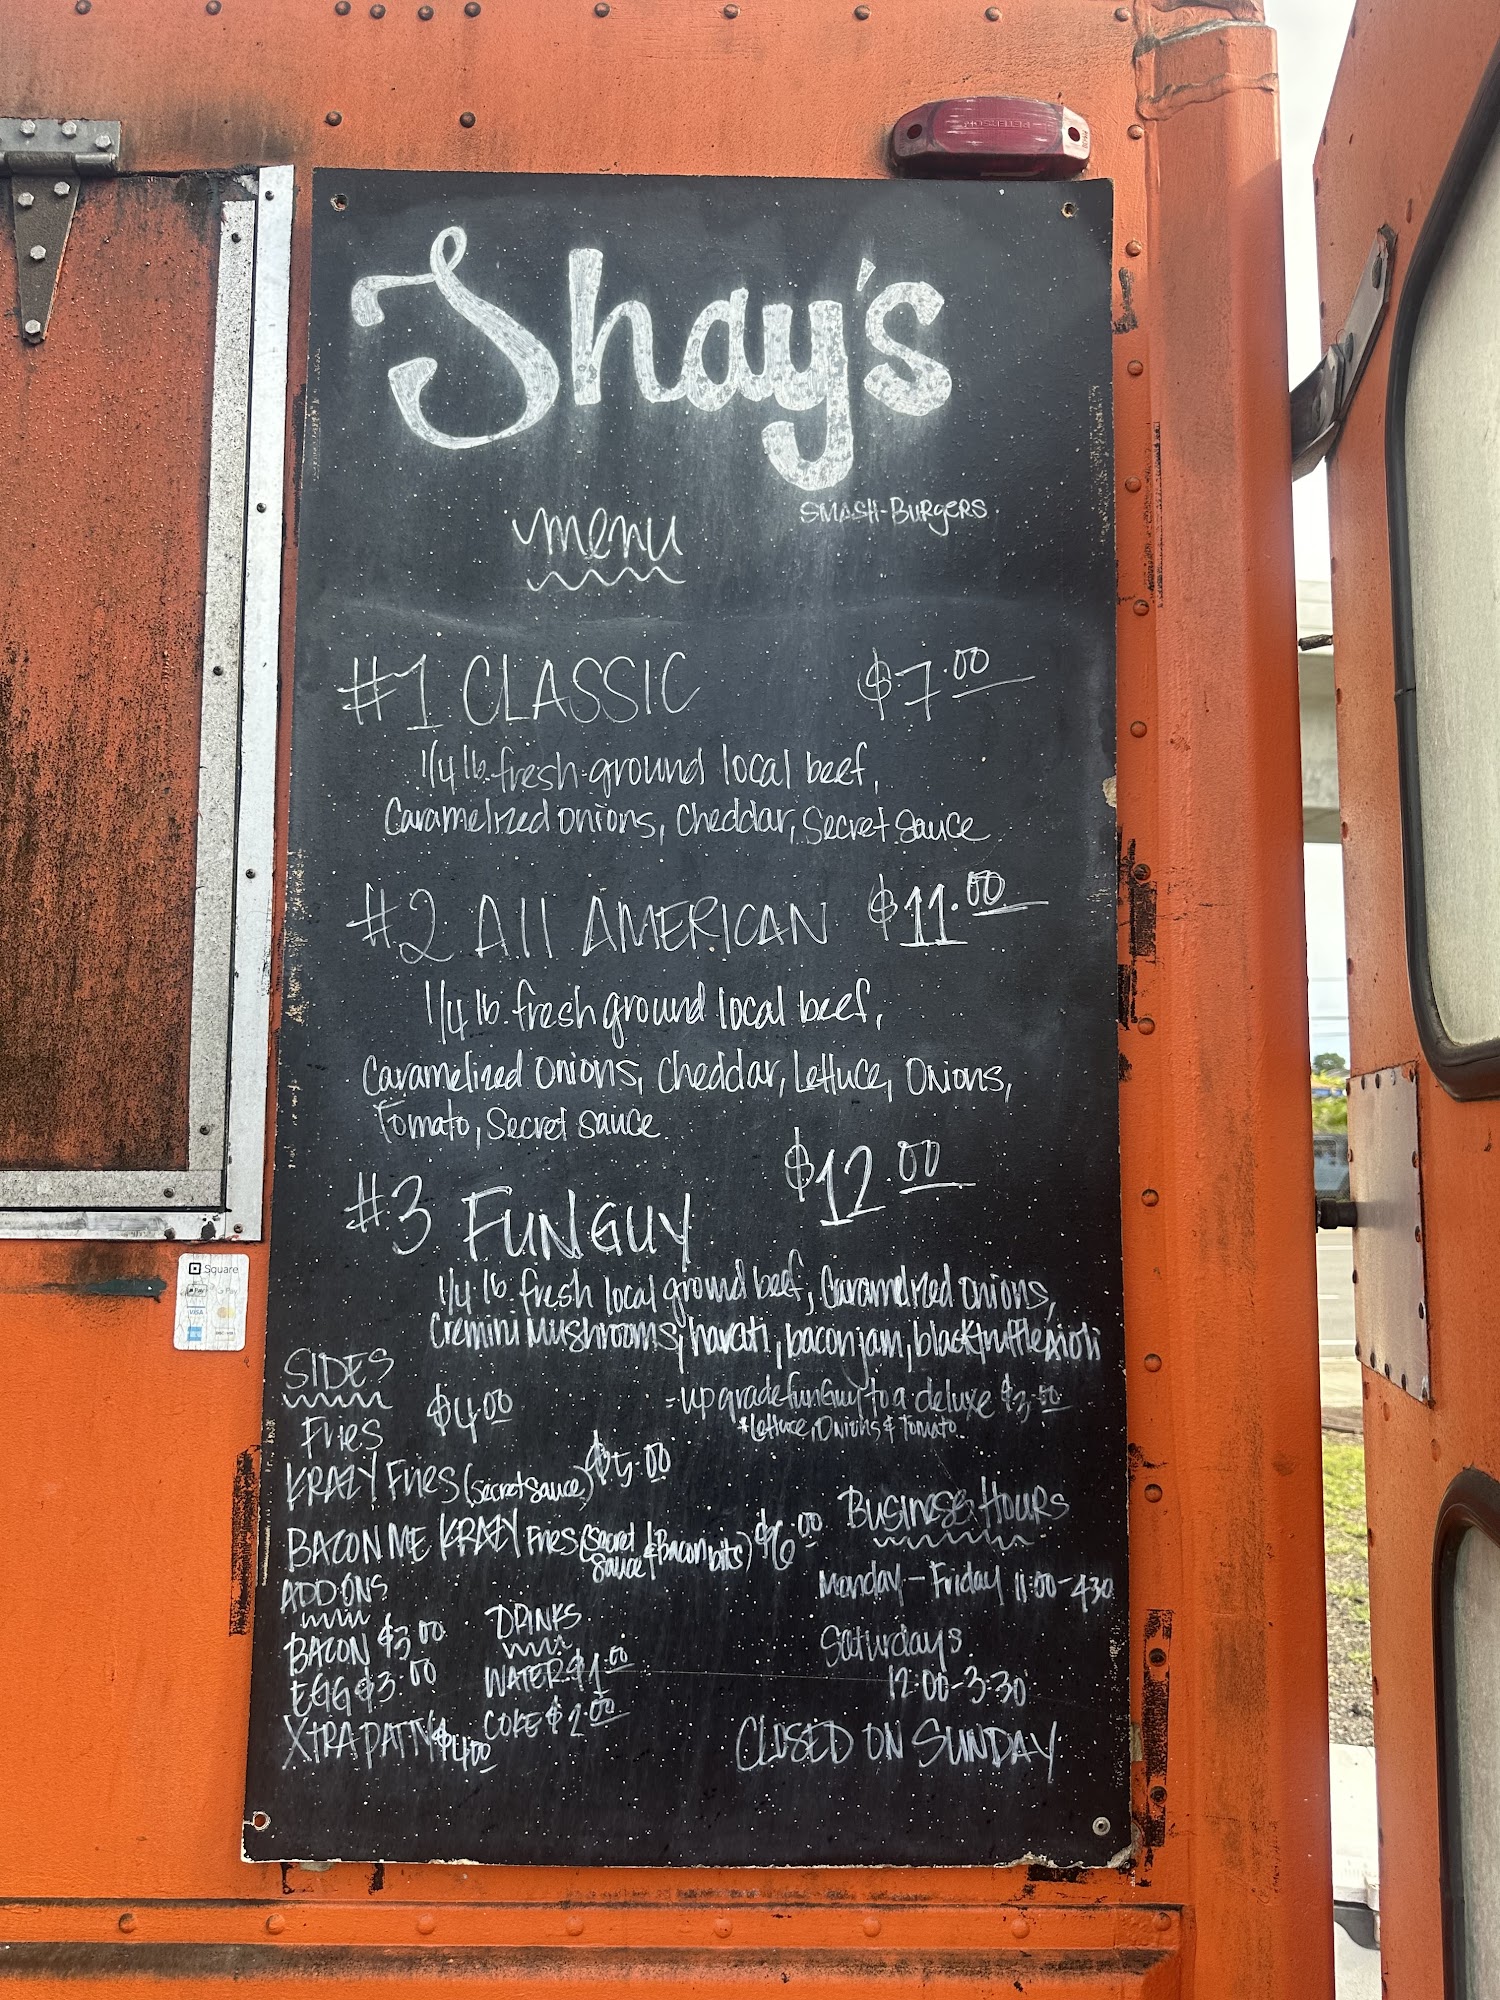 PETERSON
Shay's
SMASH-BURGERS
menu
#1 CLASSIC $7.00
1/4 lb. fresh-ground local beef,
Caramelized onions, cheddar, secret sauce
#2 All AMERICAN $11.00
1/4 lb. fresh ground local beef,
Caramelized onions, cheddar, Lettuce, Onions,
Tomato, Secret sauce
#3 FUNGUY $12.00
1/4 lb. fresh local ground beef, Caramelized onions,
Cremini Mushrooms, havarti, bacon jam, black truffle aioli
-upgrade funGuy to a deluxe $3.00
*Lettuce, Onions & Tomato
SIDES
Fries $4.00
KRAZY Fries (secret sauce) $5.00
BACON ME KRAZY Fries (secret sauce & Bacon bits) $6.00
ADD ONS
BACON $3.00
EGG $3.00
XTRA PATTY $4.00
DRINKS
WATER $1.00
COKE $2.00
BUSINESS HOURS
Monday - Friday 11:00-430
Saturdays
12:00-3:30
CLOSED ON SUNDAY
Square
Pay
Pay
VISA